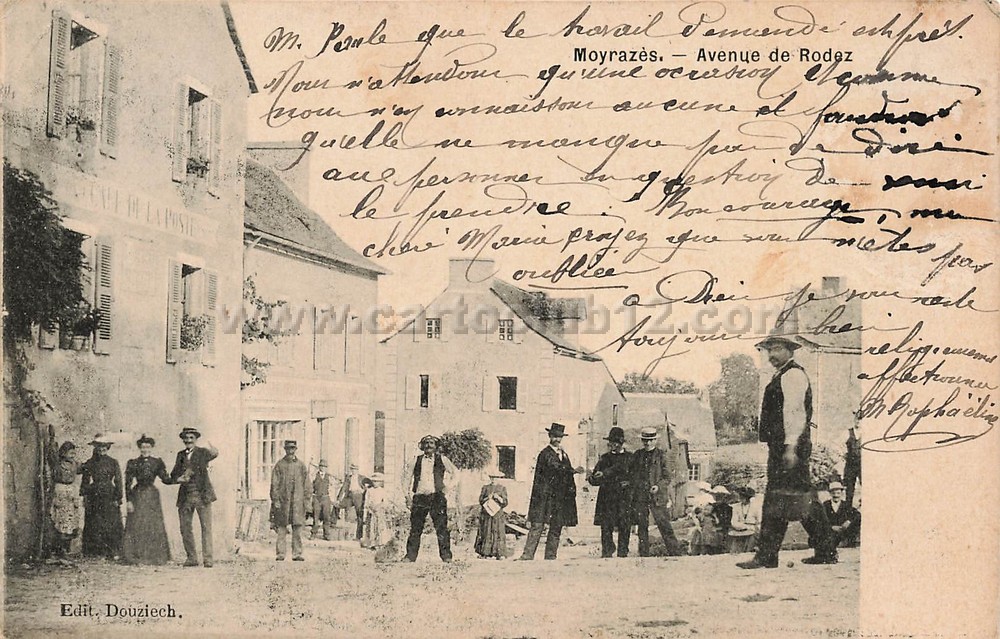 M. Paule que le travail demandé est prêt.
Moyrazès. — Avenue de Rodez
Nous n'attendons qu'une occasion et comme
nous n'en connaissons aucune il faudra
qu'elle ne manque pas de dire
aux personnes en question de
le prendre. Bon courage, ma
chère Marie croyez que vous n'êtes pas
oubliée
à Dieu je vous reste
toujours bien religieusement
affectionnée
M. Raphaëline
CAFÉ DE LA POSTE
www.cartoclub12.com
Edit. Douziech.